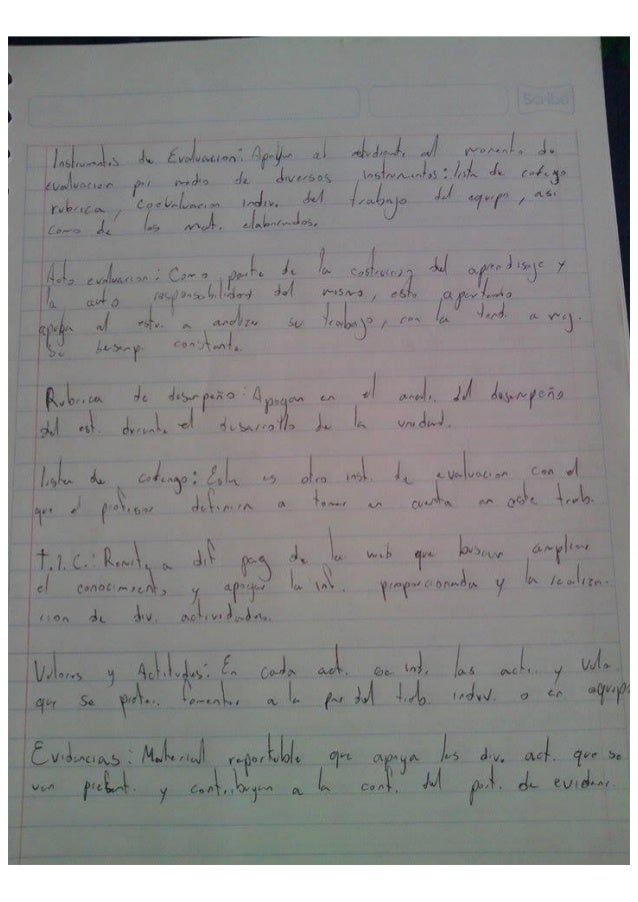 Scribe
Instrumentos de Evaluacion: Apoyan al estudiante al momento de
evaluacion por medio de diversos instrumentos: lista de codego
rubrica, coevaluacion indiv. del trabajo del equipo, asi
como de los mat. elaborados.
Auto evaluacion: Como parte de la costruccion del aprendisaje y
la auto responsabilidad del mismo, esto apartado
apoya al estu. a analizar su trabajo, con la tend. a mej.
su desemp. constante.
Rubrica de desempeño: Apoyan en el anali. del desempeño
del est. durante el desarrollo de la unidad.
lista de codengo: Esta es otro inst. de evaluacion con el
que el profesor definira a tomar en cuenta en este trab.
T.I.C.: Remite a dif pag de la web que buscan ampliar
el conocimiento y apoyar la inf. proporcionada y la realiza-
cion de div. actividades.
Valores y Actitudes: En cada act. se ind. las acti. y valo.
que se fomentar a la par del trab. indiv. o en equipo
Evidencias: Material reportable que apoya las div. act. que se
van present. y contribuyen a la conf. del port. de evidenc.